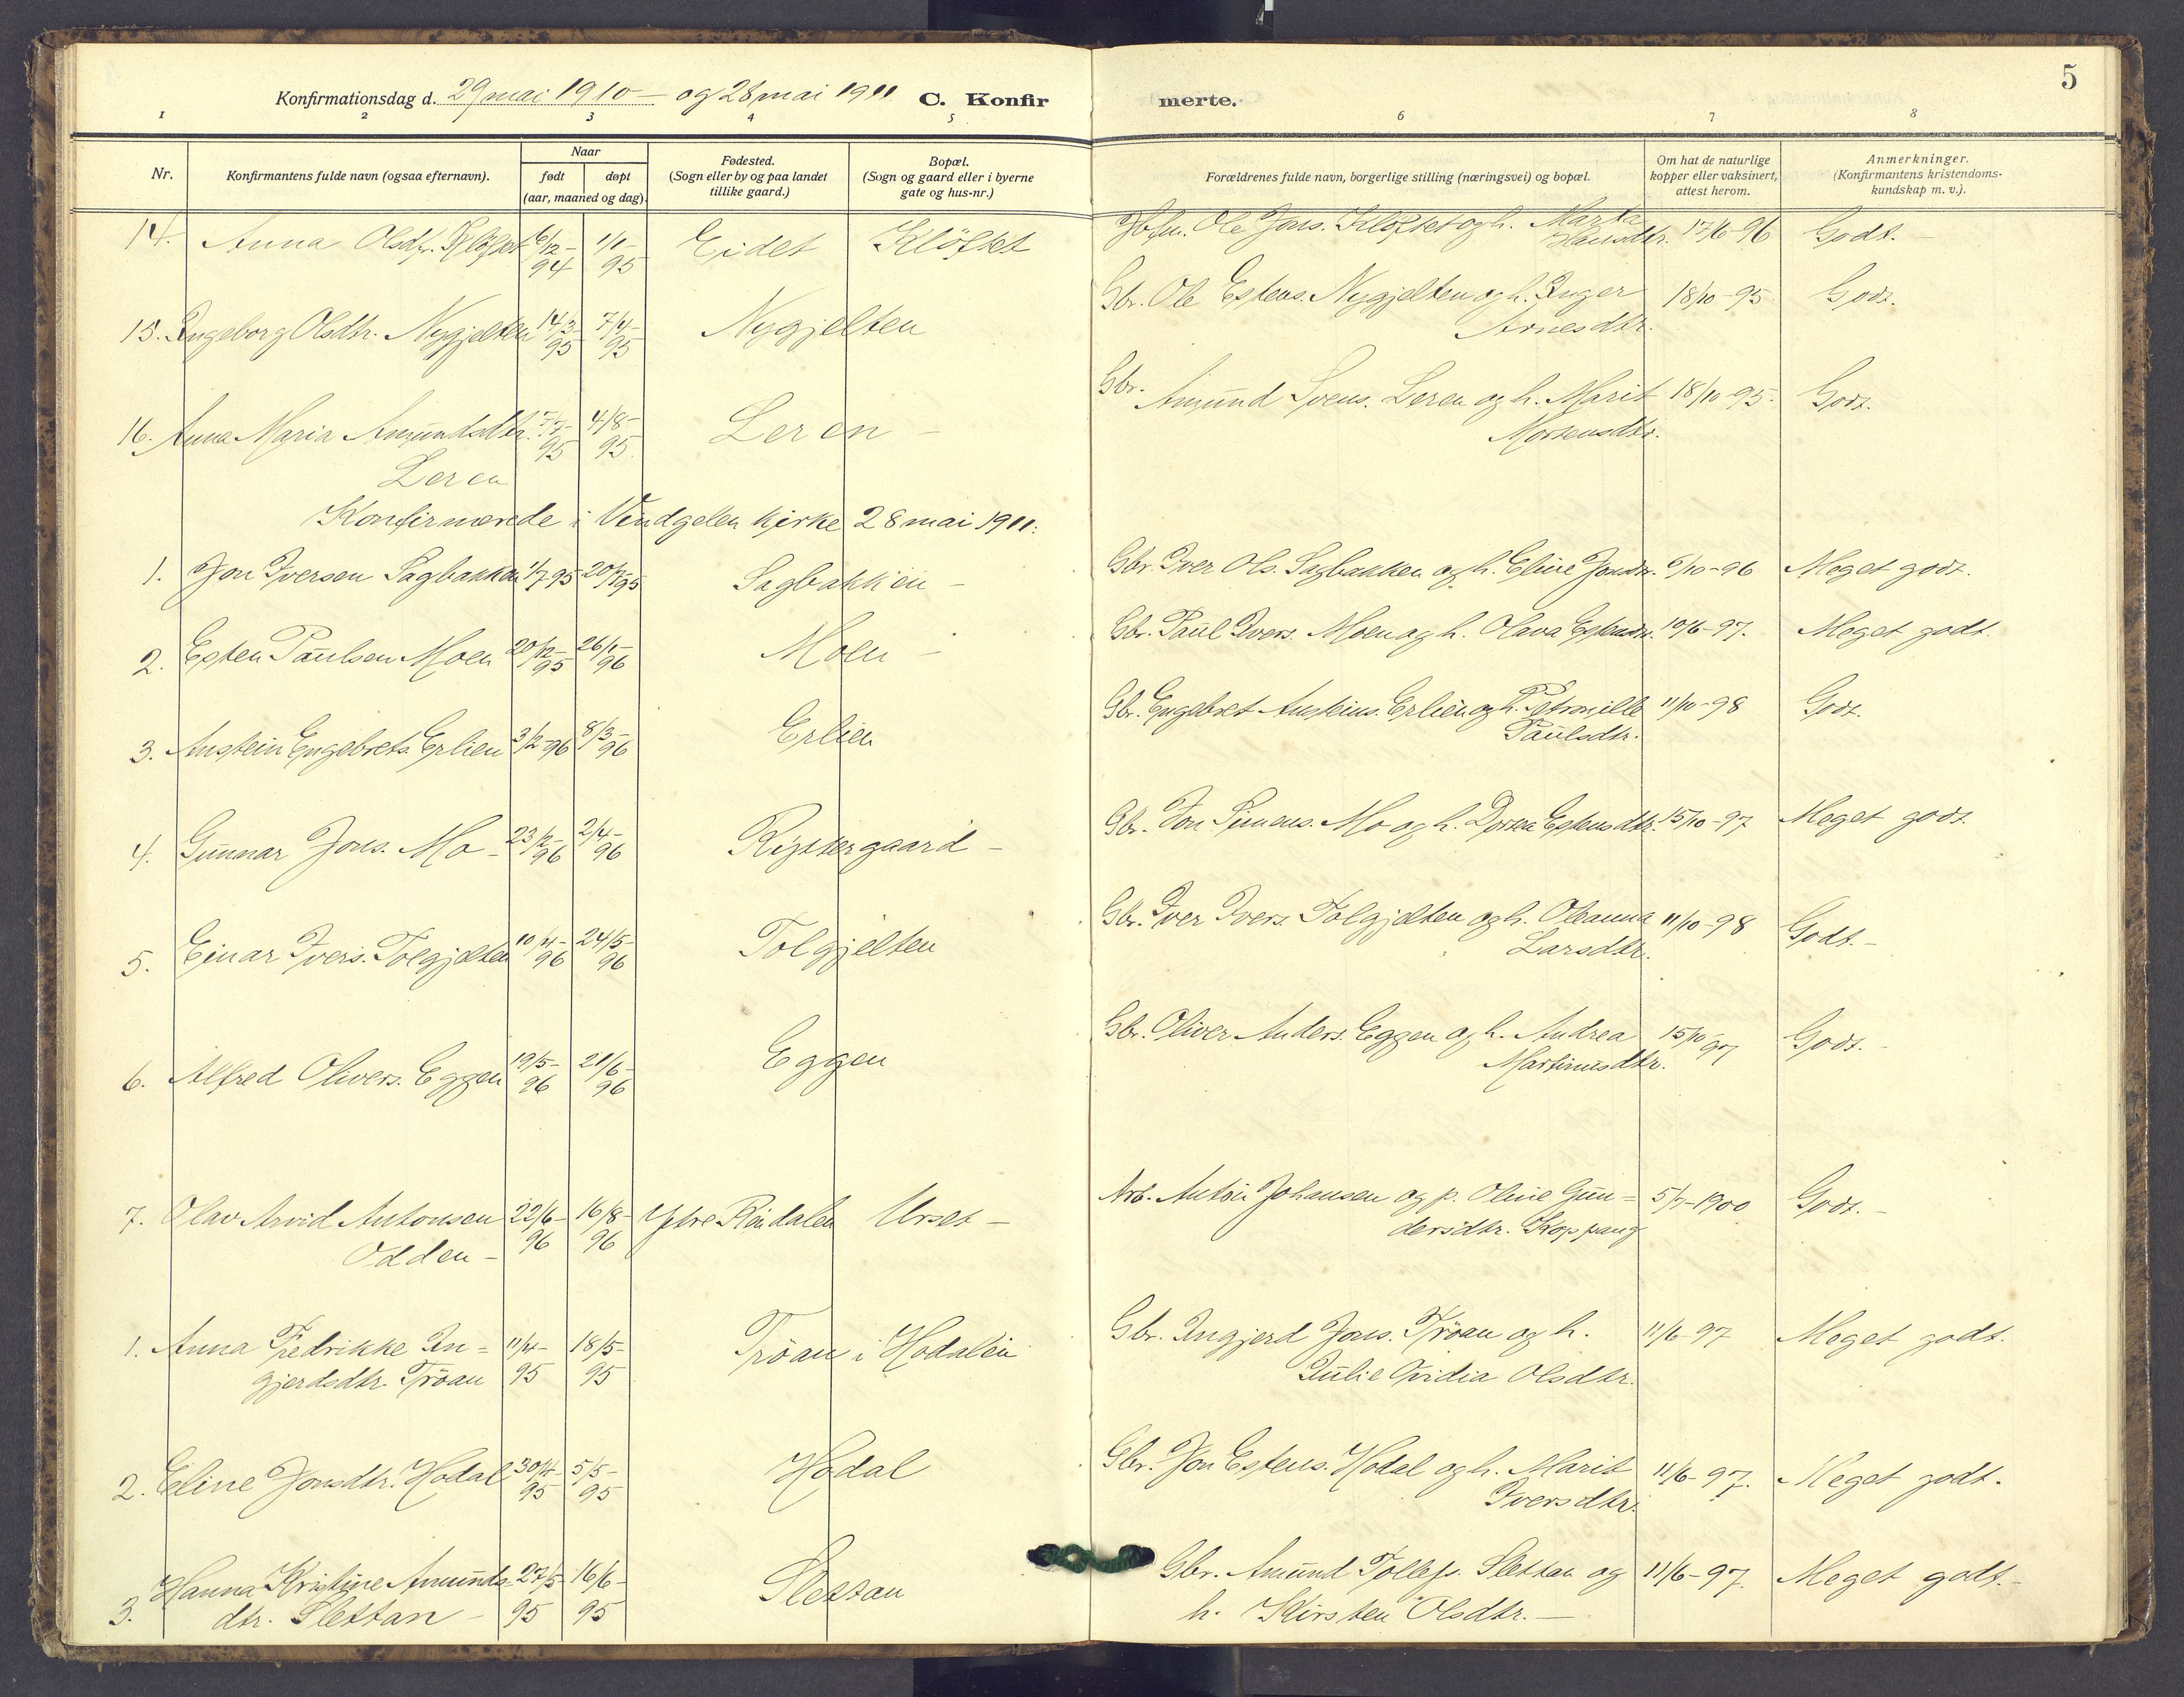 5
Konfirmationsdag d. 29 mai 1910 — og 28 mai 1911 C. Konfir merte.
1 2 3 4 5 6 7 8
Nr. Konfirmantens fulde navn (ogsaa efternavn). Naar født døpt (aar, maaned og dag). Fødested. (Sogn eller by og paa landet tillike gaard.) Bopæl. (Sogn og gaard eller i byerne gate og hus-nr.) Forældrenes fulde navn, borgerlige stilling (næringsvei) og bopæl. Om hat de naturlige kopper eller vaksinert, attest herom. Anmerkninger. (Konfirmantens kristendoms-kundskap m. v.).
14. Anna Olsdtr. Klöftet 6/12- 94 1/1- 95 Eidet Klöftet Ole Jons. Klöftet og h. Marta Hansdtr. 17/6-96 Godt.-
15. Ingeborg Olsdtr. Nygjelten 14/3- 95 7/4- 95 Nygjelten Gbr. Ole Estens. Nygjelten og h. Inger Arnesdtr. 18/10-95 Godt.
16. Anna Maria Amundsdtr. Leren 7/7- 95 4/8- 95 Leren - Gbr. Amund Svens. Leren og h. Marit Mortensdtr. 18/10-95- Godt.
Konfirmerede i Vindgelen kirke 28 mai 1911:
1. Jon Iversen Sagbakken 1/7-95 20/7-95 Sagbakken - Gbr. Iver Ols. Sagbakken og h. Eline Jonsdtr. 6/10-96 Meget godt.
2. Esten Paulsen Moen 20/12- 95 26/1- 96 Moen - Gbr. Paul Ivers. Moen og h. Olava Estensdtr. 10/6-97. Meget godt.
3. Anstein Engebrets. Erlien 3/2-96 8/3- 96 Erlien Gbr. Engebret Ansteins. Erlien og h. Petronille Paulsdtr. 11/10-98 Godt.
4. Gunnar Jons. Mo - 23/2- 96 2/4- 96 Rystergaard - Gbr. Jon Simens. Mo og h. Dortea Estensdtr. 15/10-97 Meget godt.
5. Einar Ivers. Tolgjelten 10/4- 96 24/5- 96 Tolgjelten Gbr. Iver Ivers. Tolgjelten og h. Oleanna Larsdtr. 11/10-98 Godt.-
6. Alfred Olivers. Eggen 19/5- 96 21/6- 96 Eggen Gbr. Oliver Anders. Eggen og h. Andrea Martinusdtr. 15/10-97 Godt.-
7. Olav Arvid Antonsen Odden - 22/6- 96 16/8- 96 Ytre Rendalen Urset - Arb. Anton Johansen og p. Oline Gun= dersdtr. Koppang 5/7-1900 Godt.-
1. Anna Fredrikke In= gjerdsdtr. Tröan 11/4- 95 18/5- 95 Tröan i Hodalen Gbr. Ingjerd Jons. Tröan og h. Julie Ovidia Olsdtr. 11/6-97 Meget godt.
2. Eline Jonsdtr. Hodal 30/4- 95 5/5- 95 Hodal Gbr. Jon Estens. Hodal og h. Marit Iversdtr. 11/6-97. Meget godt.
3. Hanna Kristine Amunds- dtr. Slettan - 27/5- 95 16/6- 95 Slettan Gbr. Amund Tollefs. Slettan og h. Kirsten Olsdtr. — 11/6-97. Meget godt.-